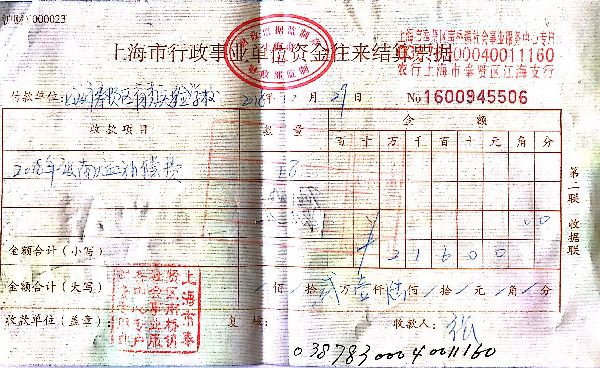 沪财 000023
上海市行政事业单位资金往来结算票据
上海市奉贤区南桥镇社会事业服务中心专用
00040011160
农行上海市奉贤区江海支行
付款单位:上海市奉贤区 实验学校 2018年12月29日 No 1600945506
收款项目 数量 金额
百 十 万 千 百 十 元 角 分
2018年 补偿费
00
金额合计(小写) ¥ 2 1 6 0 0
金额合计(大写) / 佰 / 拾 贰 万 壹 仟 陆 佰 / 拾 / 元 / 角 / 分
第二联 收据联
收款单位(盖章): 复核: 收款人:张
上海市奉贤区南桥镇社会事业服
03878300040011160